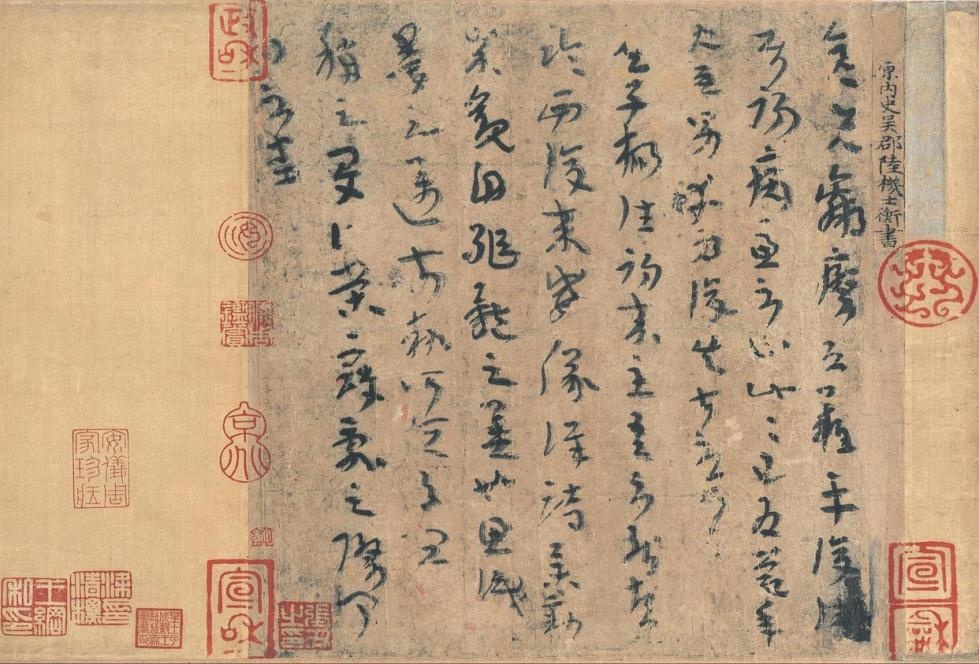 原內史吳郡陸機士衡書
彦先羸瘵恐難平復往屬
初病慮不止此此已為慶承
使唯男幸為復失前憂耳
吳子楊往初來主吾不能盡
臨西復來威儀詳跱舉動
成觀自軀體之美也思識
量之邁前執所恒有宜
稱之夏伯榮寇亂之際聞
問不悉
政和
宣和
宣和
安儀周家珍藏
張丑之印